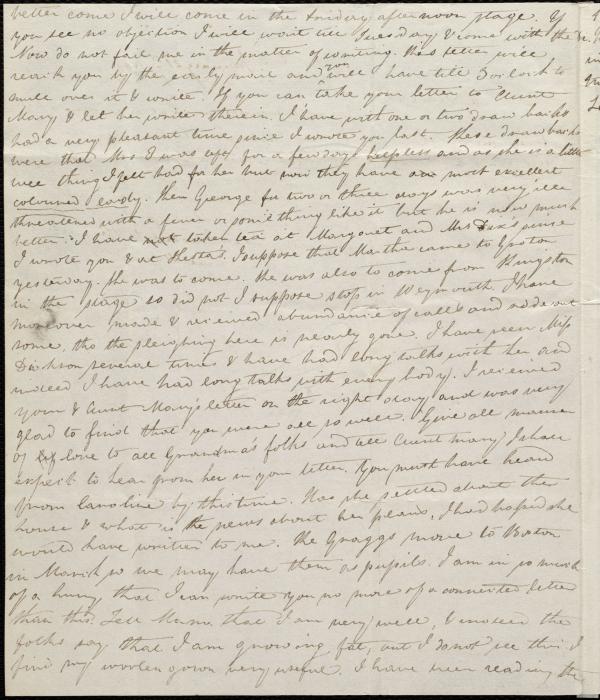 better come I will come in the Friday afternoon stage. If
you see no objection I will wait till Tuesday & come with the Dr.
Now do not fail me in the matter of writing. This letter will
reach you by the early mail and you will have till 3 o'clock to
mull over it & write. If you can take your letter to Aunt
Mary & let her write therein. I have with one or two draw backs
had a very pleasant time since I wrote you last. These draw backs
were that Mrs J was left for a few days helpless and as she is a little
wee thing I felt bad for her but now they have a most excellent
coloured lady. Then George for two or three days was very ill
threatened with a fever or something like it but he is now much
better. I have taken tea at Margaret and Mrs Dix's since
I wrote you & at Hesta's. I suppose that Martha came to Groton
yesterday. She was to come. She was also to come from Kingston
in the stage so did not I suppose stop in Weymouth. I have
moreover made & received abundance of calls and rode out
some, tho the sleighing here is nearly gone. I have seen Miss
Dickson several times & have had long talks with her and
indeed I have had long talks with every body. I received
your & Aunt Mary's letter on the right day and was very
glad to find that you were all so well. Give all manner
of love to all Grandma's folks and all Aunt Mary I shall
expect to hear from her in your letter. You must have heard
from Caroline by this time. Has she settled about the
house & what is the news about her plans. I had hoped she
would have written to me. The Graggs move to Boston
in March so we may have them as pupils. I am in so much
of a hurry that I can write you no more of a connected letter
than this. Tell Mum that I am very well, & indeed the
folks say that I am growing fat, but I do not see this. I
find my woolen gown very useful. I have been reading the